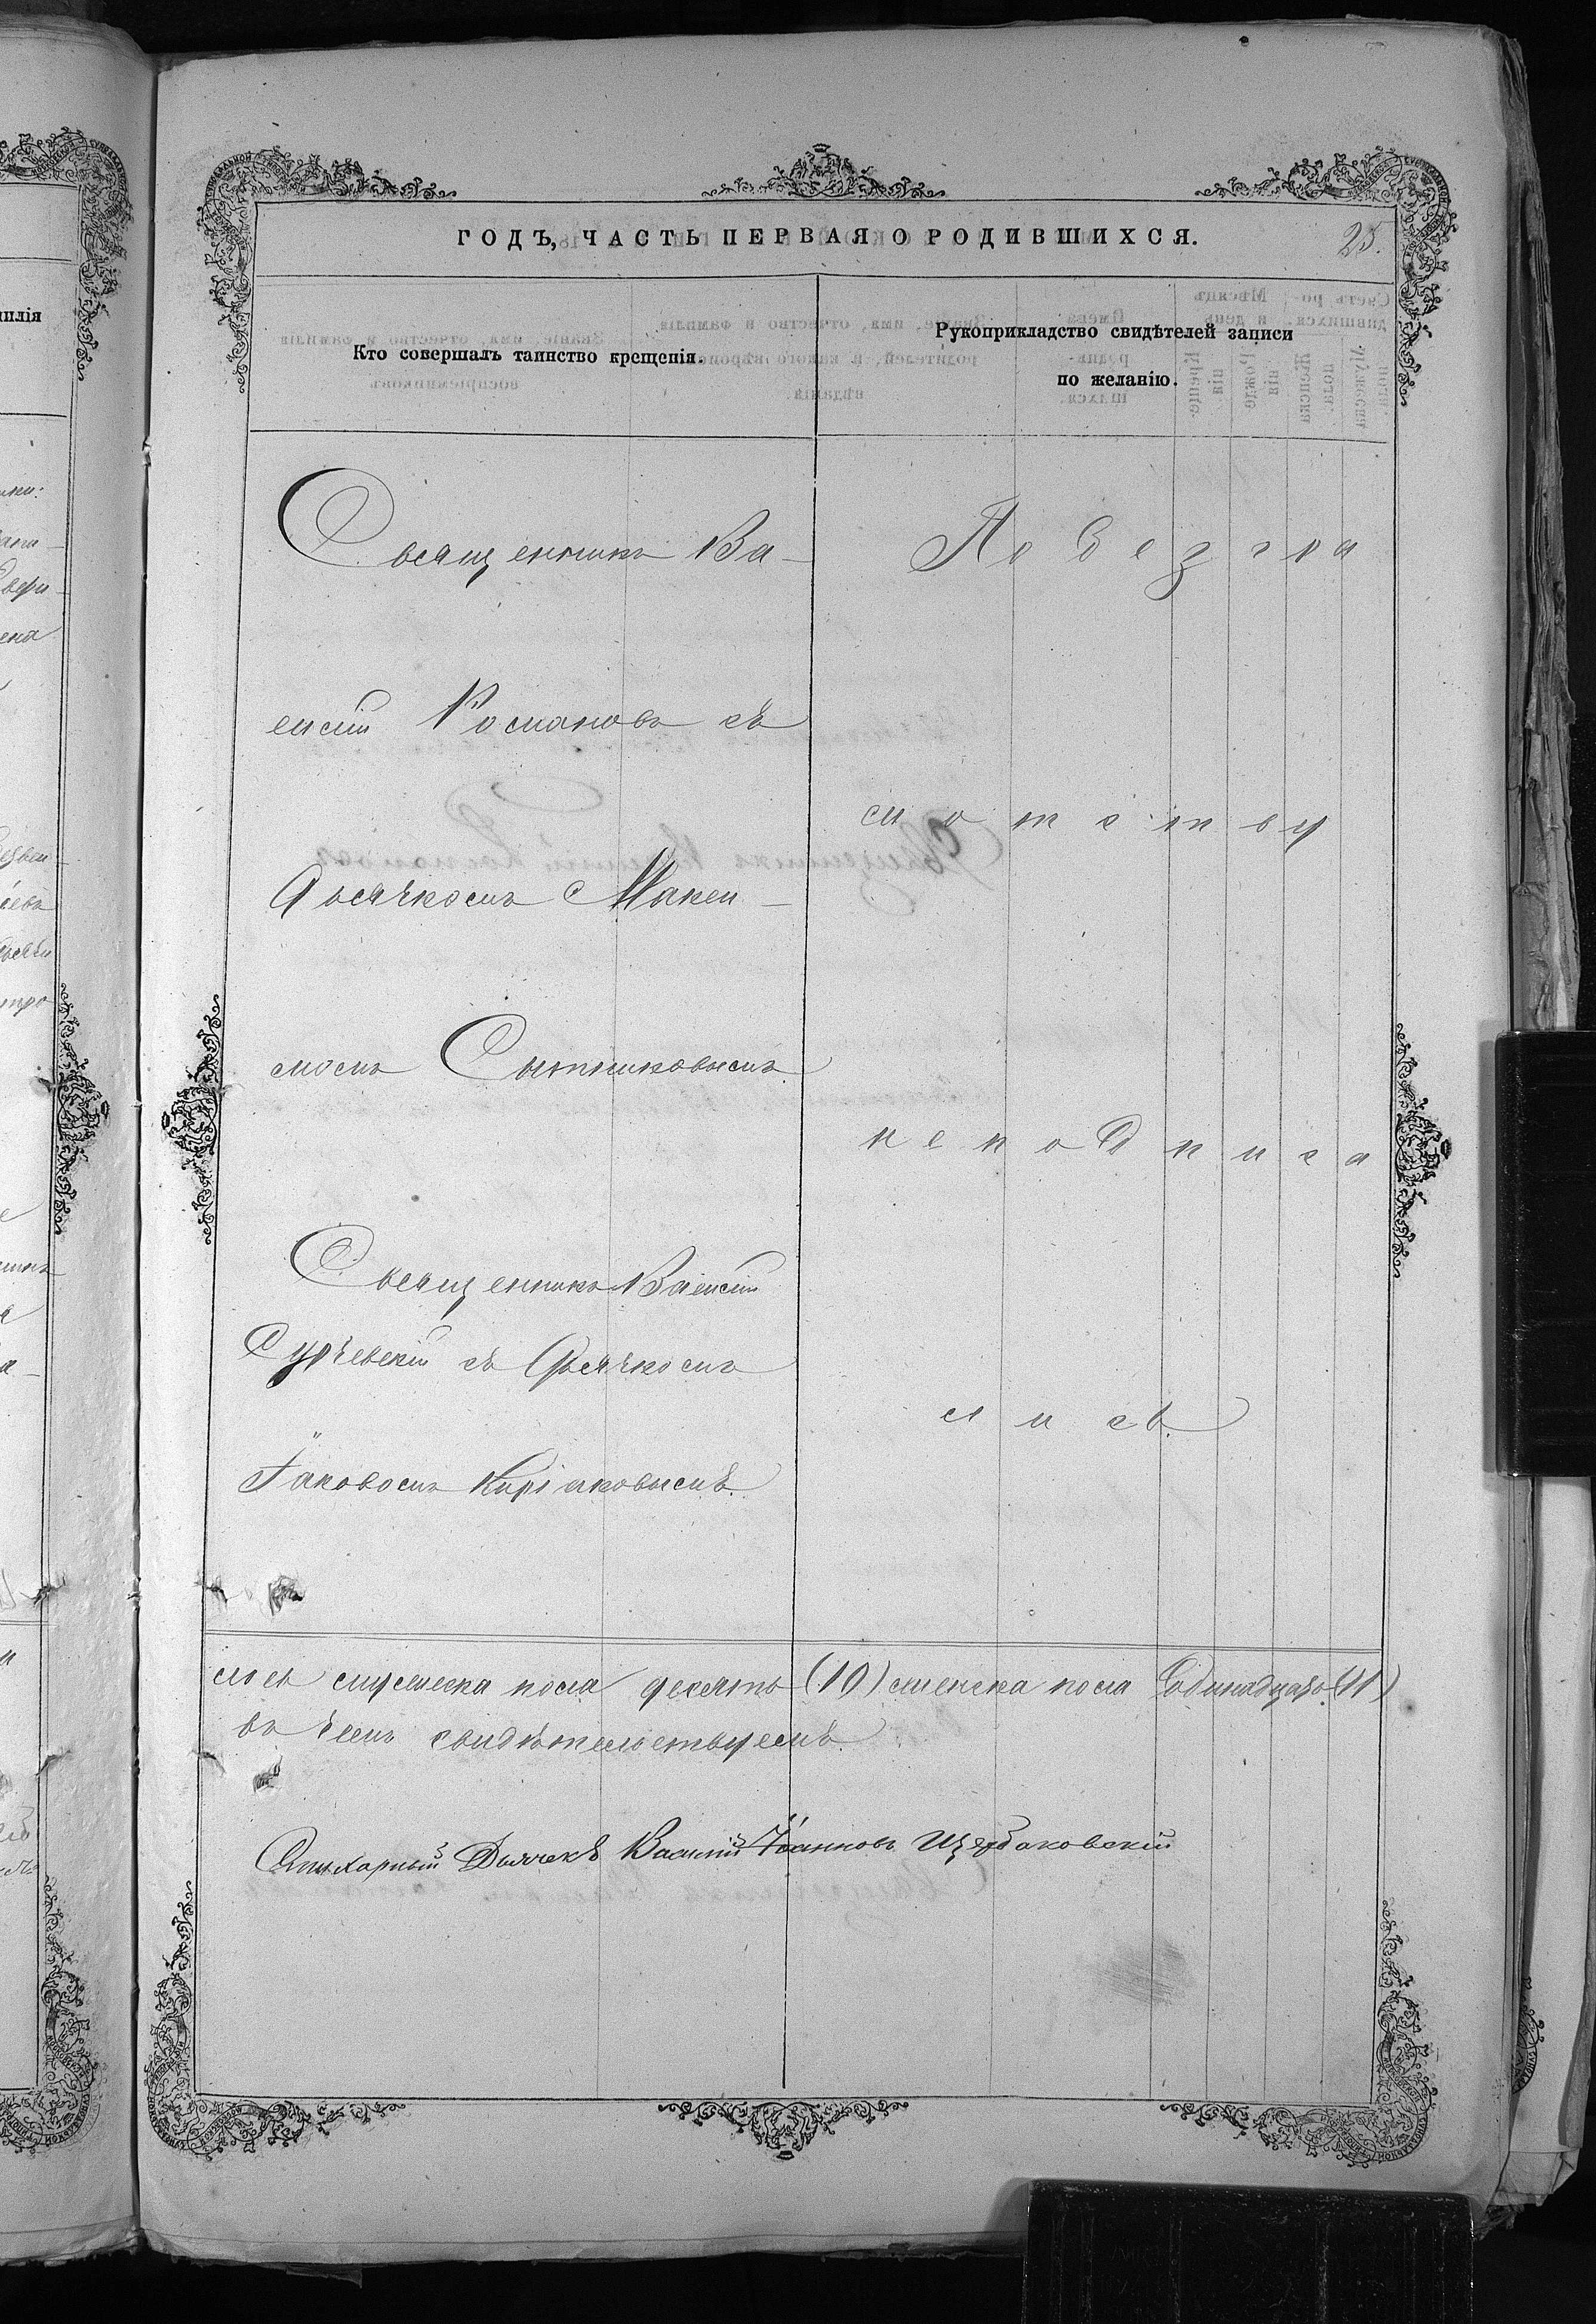 ГОДЪ, ЧАСТЬ ПЕРВАЯ О РОДИВШИХСЯ.
25.
Кто совершалъ таинство крещенія.
Рукоприкладство свидѣтелей записи
по желанію.
Священникъ Ва-
силій Романовъ съ
Дьячкомъ Макси-
момъ Сытниковымъ.
Священникъ Василій
съ Дьячкомъ
Іаковомъ Киріаковымъ.
По безгра
мотству
неподписа
лись.
мужеска пола десять (10) женска пола одинадцать (11)
въ чемъ свидѣтельствуемъ.
Стихарный Дьячекъ Василій Іоанновъ Щербаковскій